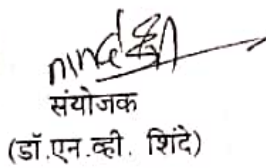 संयोजक
(डॉ.एन.व्ही. शिंदे)